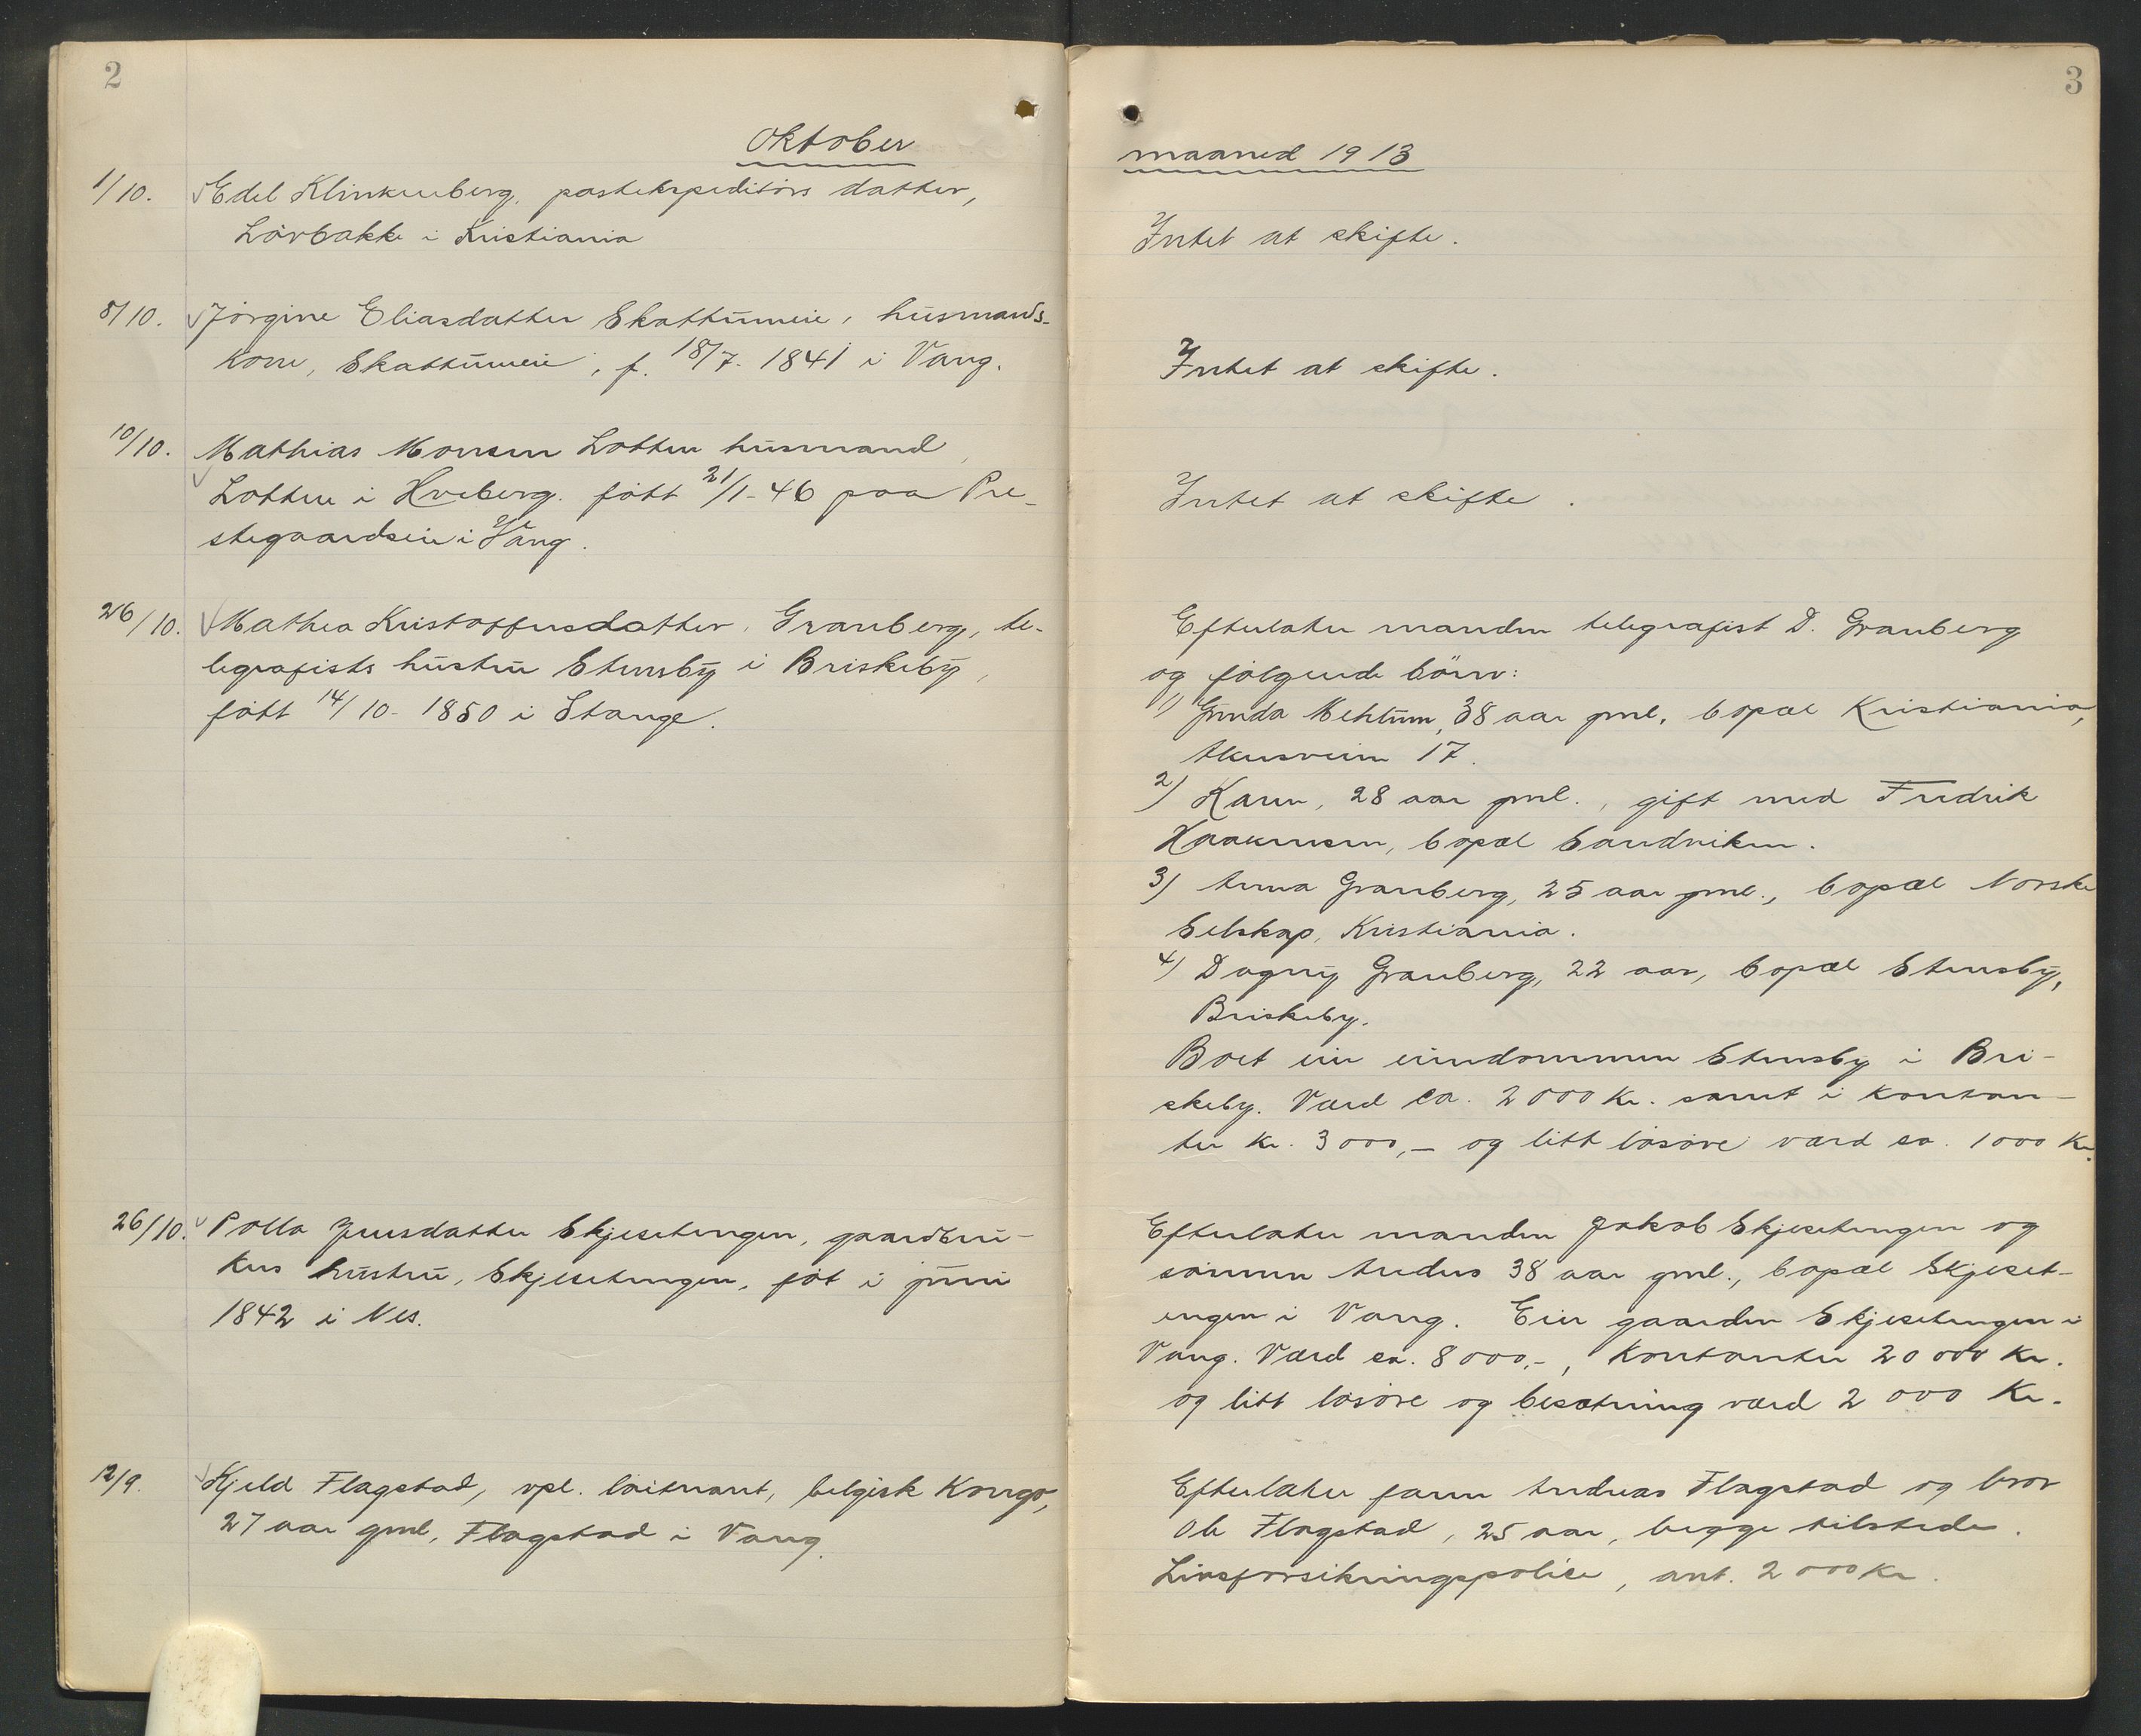 2
Oktober
1/10. Edel Klinkenberg, postekspeditörs datter,
Lövbakke i Kristiania
8/10. Jörgine Eliasdatter Skattumeie, husmands-
kone, Skattumeie, f. 18/7- 1841 i Vang.
10/10. Mathias Monsen Lotten husmand,
Lotten i Hveberg. fött 21/1-46 paa Pre-
stegaardseie i Vang.
26/10. Mathea Kristoffersdatter Granberg, te-
legrafists hustru Stensby i Briskeby,
fött 14/10- 1850 i Stange.
26/10. Polla Jensdatter Skjesetengen, gaardbru-
kers hustru, Skjesetengen, föt i juni
1842 i Nes.
12/9. Kjeld Flagstad, vpl. löitnant, belgisk Kongo,
27 aar gml, Flagstad i Vang.
3
maaned 1913
Intet at skifte.
Intet at skifte.
Intet at skifte.
Efterlater manden telegrafist D. Granberg
og fölgende börn:
1) Gunda Mehlum, 38 aar gml. bopæl Kristiania,
Akersveien 17.
2) Karen, 28 aar gml., gift med Fredrik
Haakensen, bopæl Sandviken.
3) Anna Granberg, 25 aar gml., bopæl Norske
Selskap, Kristiania.
4) Dagny Granberg, 22 aar, bopæl Stensby,
Briskeby.
Boet eier eiendommen Stensby i Bri-
skeby. Værd ca. 2000 Kr. samt i kontan-
ter kr. 3000,- og litt lösöre værd ca. 1000 Kr.
Efterlater manden Jakob Skjesetengen og
sönnen Andreas 38 aar gml., bopæl Skjeset-
engen i Vang. Eier gaarden Skjesetengen i
Vang. Værd ca. 8000,-, Kontanter 20000 Kr.
og litt lösöre og besætning værd 2000 Kr.
Efterlater faren Andreas Flagstad og bror
Ole Flagstad, 25 aar, begge tilstede.
Livsforsikringspolice, ant. 2000 Kr.